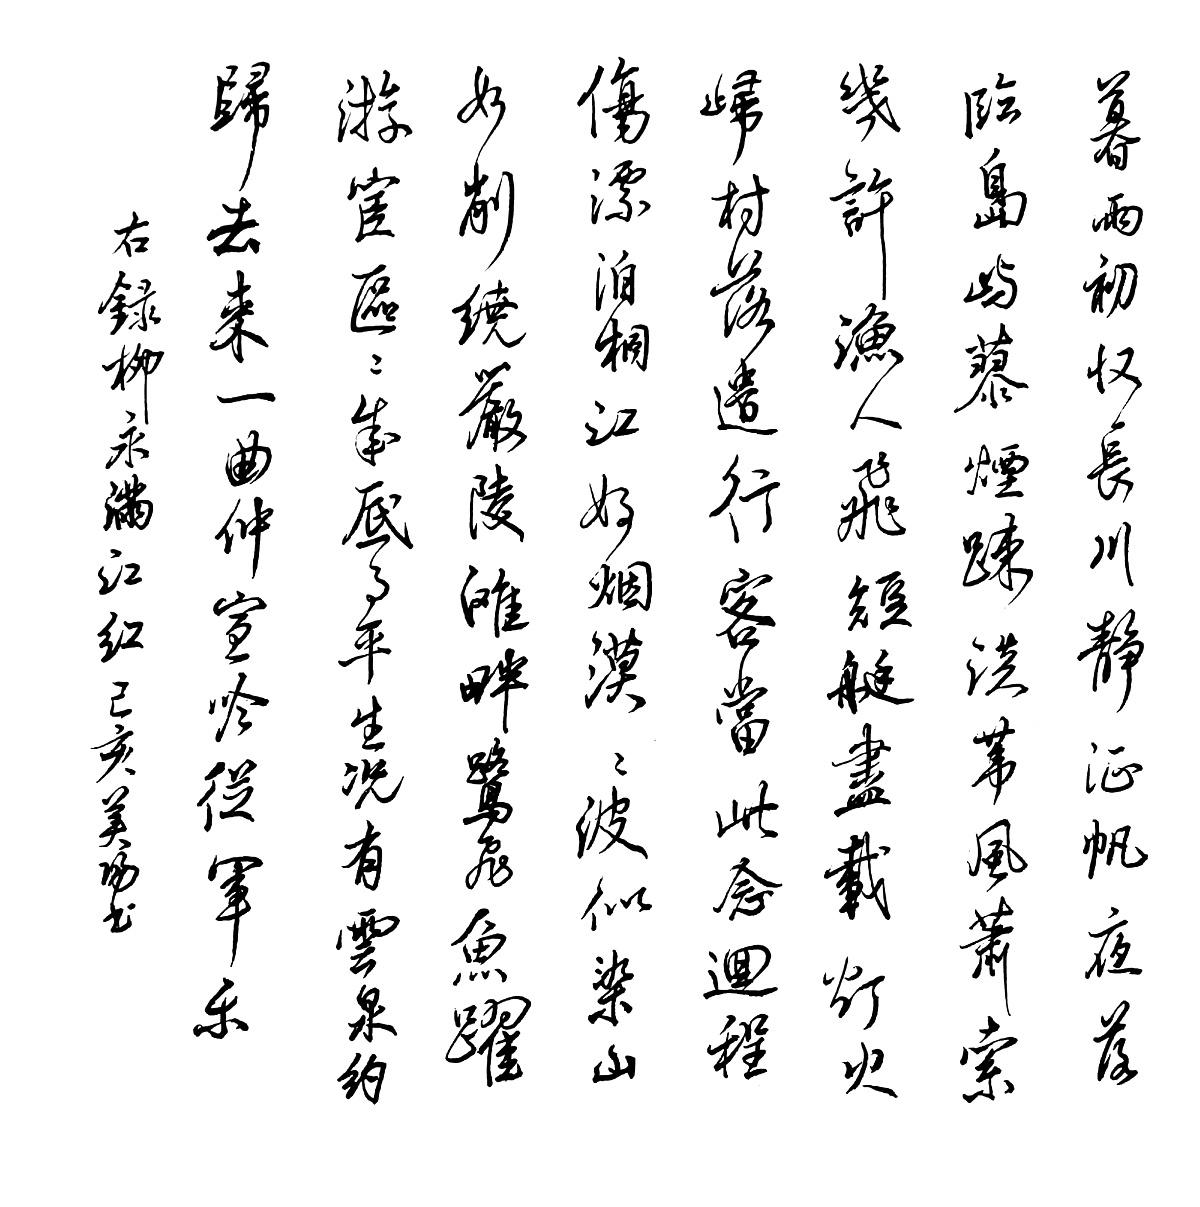 暮雨初收長川靜征帆夜落
臨島嶼蓼煙疎淡葦風蕭索
幾許漁人飛短艇盡載灯火
歸村落遣行客當此念迴程
傷漂泊桐江好烟漠〻波似染山
如削繞嚴陵滩畔鷺飛魚躍
游宦區〻成底事平生況有雲泉約
歸去來一曲仲宣吟從軍乐
右録柳永滿江紅己亥美功书